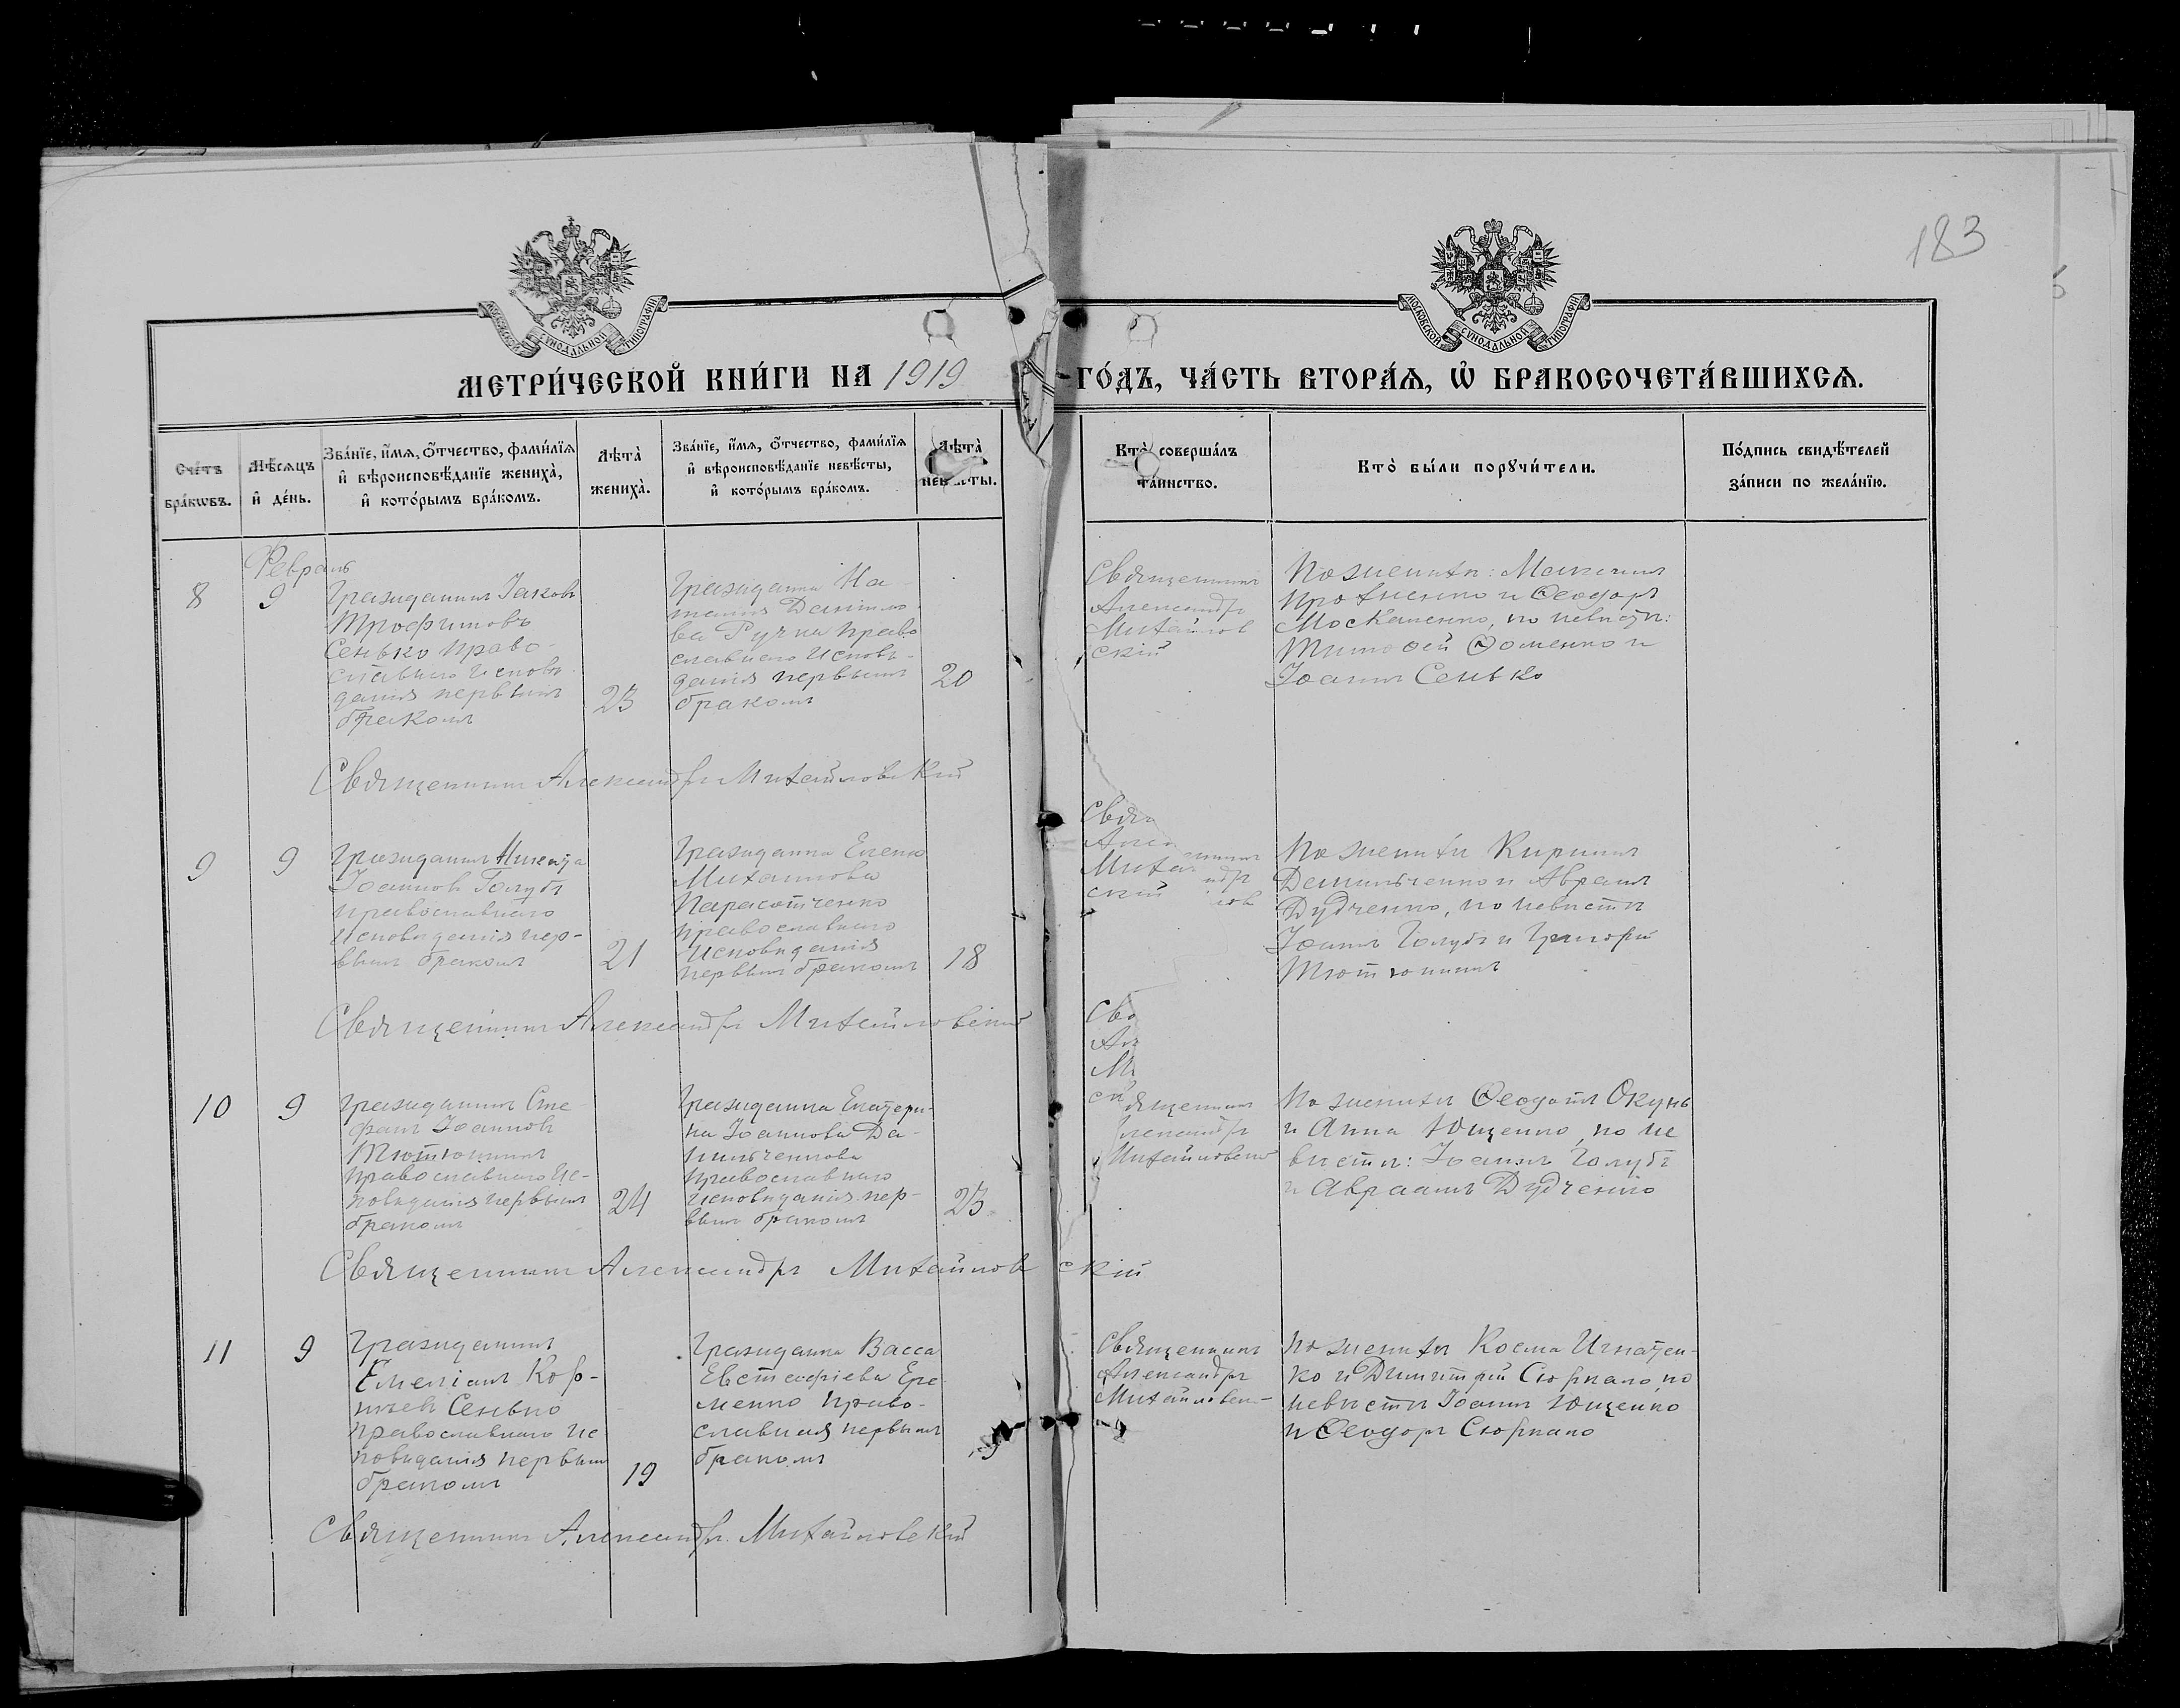 183
МОСКОВСКОЙ СѴНОДАЛЬНОЙ ТИПОГРАФІИ
МОСКОВСКОЙ СѴНОДАЛЬНОЙ ТИПОГРАФІИ
МЕТРИ́ЧЕСКОЙ КНИ́ГИ НА 1919 ГО́ДЪ, ЧА́СТЬ ВТОРА́Ѧ, Ѡ҆ БРАКОСОЧЕТА́ВШИХСѦ.
Сче́тъ
бра́кѡвъ.
Мѣ́сѧцъ
и҆ де́нь.
Зва́нїе, и҆́мѧ, ѻ҆́тчество, фами́лїѧ
и҆ вѣроисповѣ́данїе жениха̀,
и҆ кото́рымъ бра́комъ.
Лѣта̀
жениха̀.
Зва́нїе, и҆́мѧ, ѻ҆́тчество, фами́лїѧ
и҆ вѣроисповѣ́данїе невѣ́сты,
и҆ кото́рымъ бра́комъ.
Лѣта̀
невѣ́сты.
Кто̀ соверша́лъ
та́инство.
Кто̀ бы́ли порꙋчи́тели.
По́дпись свидѣ́телей
за́писи по жела́нїю.
8
Февраль
9
Гражданинъ Іаковъ
Трофимовъ
Сенько право-
славнаго исповѣ-
данія первымъ
бракомъ
23
Гражданка На-
талія Данило-
ва Ручка право
славнаго исповѣ-
данія первымъ
бракомъ
20
Священникъ
Александръ
Михайлов
скій
По женихѣ:
и Ѳеодоръ
Москаленко, по невѣстѣ:
Тимоѳей Ѳоменко и
Іоаннъ Сенько
Священникъ Александръ Михайловскій
9
9
Гражданинъ Никита
Іоанновъ Голубъ
православнаго
исповѣданія пер-
вымъ бракомъ
21
Гражданка Елена
Михаилова
православнаго
исповѣданія
первымъ бракомъ
18
Свящ
Алек енникъ
Миха ндръ
скій лов
По женихѣ Кириллъ
Данильченко и Авраамъ
Дудченко, по невѣстѣ
Іоаннъ Голубъ и Григорій
Тютюнникъ
Священникъ Александръ Михайловскій
Свя
Ал
Ми
ск
10
9
Гражданинъ Сте-
фанъ Іоанновъ
Тютюнникъ
православнаго ис-
повѣданія первымъ
бракомъ
24
Гражданка Екатери-
на Іоаннова Да-
нильченкова
православнаго
исповѣданія пер-
вымъ бракомъ
23
ященникъ
лександръ
Михайловскій
По женихѣ Ѳеодотъ Окунь
и Анна Ющенко, по не
вѣстѣ: Іоаннъ Голубъ
и Авраамъ Дудченко
Священникъ Александръ Михайлов скій
11
9
Гражданинъ
Емеліанъ Кор-
Сенько
православнаго ис
повѣданія первымъ
бракомъ
19
Гражданка Васса
Евстафіева Ере
менко право-
славная первымъ
бракомъ
Священникъ
Александръ
Михайловск-
По женихѣ Косма Игнатен-
ко и Димитрій Сюркало, по
невѣстѣ Іоаннъ Ющенко
и Ѳеодоръ Сюркало
Священникъ Александръ Михайловскій